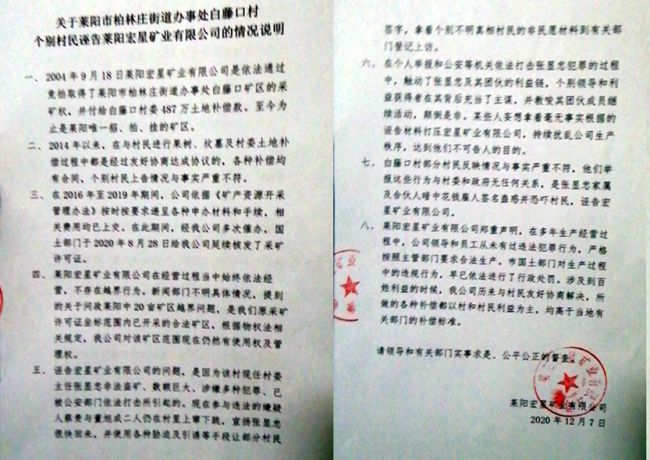 关于莱阳市柏林庄街道办事处白藤口村
个别村民诬告莱阳宏星矿业有限公司的情况说明
一、2004年9月18日莱阳宏星矿业有限公司是依法通过
竞拍取得了莱阳市柏林庄街道办事处白藤口矿区的采
矿权，并付给白藤口村委487万土地补偿款，至今为
止是莱阳唯一招、拍、挂的矿区。
二、2014年以来，在与村民进行果树、坟墓及村委土地补
偿过程中都是经过友好协商达成协议的，各种补偿均
有合同，个别村民上告情况与事实严重不符。
三、在2016年至2019年期间，公司依据《矿产资源开采
管理办法》按时按要求递呈各种申办材料和手续，相
关费用均已上交。在此期间，经我公司多次催办，国
土部门于2020年8月28日给我公司延续核发了采矿
许可证。
四、莱阳宏星矿业有限公司在经营过程当中始终依法经
营，不存在越界行为。新闻部门不明具体情况，提到
的关于问政莱阳中20亩矿区越界问题，是我们原采矿
许可证坐标范围内已开采的合法矿区，根据物权法相
关规定，我公司对该矿区范围现在仍然有使用权及管
理权。
五、诬告宏星矿业有限公司的问题，是因为该村现任村委
主任张显忠非法盗矿、数额巨大、涉嫌多种犯罪、已
被公安部门依法打击所引起的。现在参与违法的嫌疑
人蔡贵与董旭成二人仍在村里上窜下跳，宣扬张显忠
很快回来，并使用各种胁迫及引诱等手段让部分村民
签字，拿着个别不明真相村民的非民愿材料到有关部
门登记上访。
六、在个人举报和公安等机关依法打击张显忠犯罪的过程
中，触动了张显忠及其团伙的利益链，个别领导和利
益获得者在其背后充当了主谋，并教唆其团伙成员继
续活动，颠倒是非。某些人妄想拿着毫无事实根据的
诬告材料打压宏星矿业有限公司，持续扰乱公司生产秩
序，达到他们不可告人的目的。
七、白藤口村部分村民反映情况与事实严重不符，他们举
报这些行为与村委和政府无任何关系，是张显忠家属
及合伙人暗中花钱雇人签名蛊惑并恐吓村民，诬告宏
星矿业有限公司。
八、莱阳宏星矿业有限公司郑重声明，在多年生产经营过
程中，公司领导和员工从未有过违法犯罪行为，严格
按照主管部门要求合法生产。市国土部门对生产过程
中的违规行为，早已依法进行了行政处罚。涉及到百
姓利益的时候，我公司历来与村民友好协商解决，所
做的各种补偿都以村和村民利益为主，均高于当地有
关部门的补偿标准。
请领导和有关部门实事求是、公平公正的督查。
莱阳宏星矿业有限公司
2020年12月7日